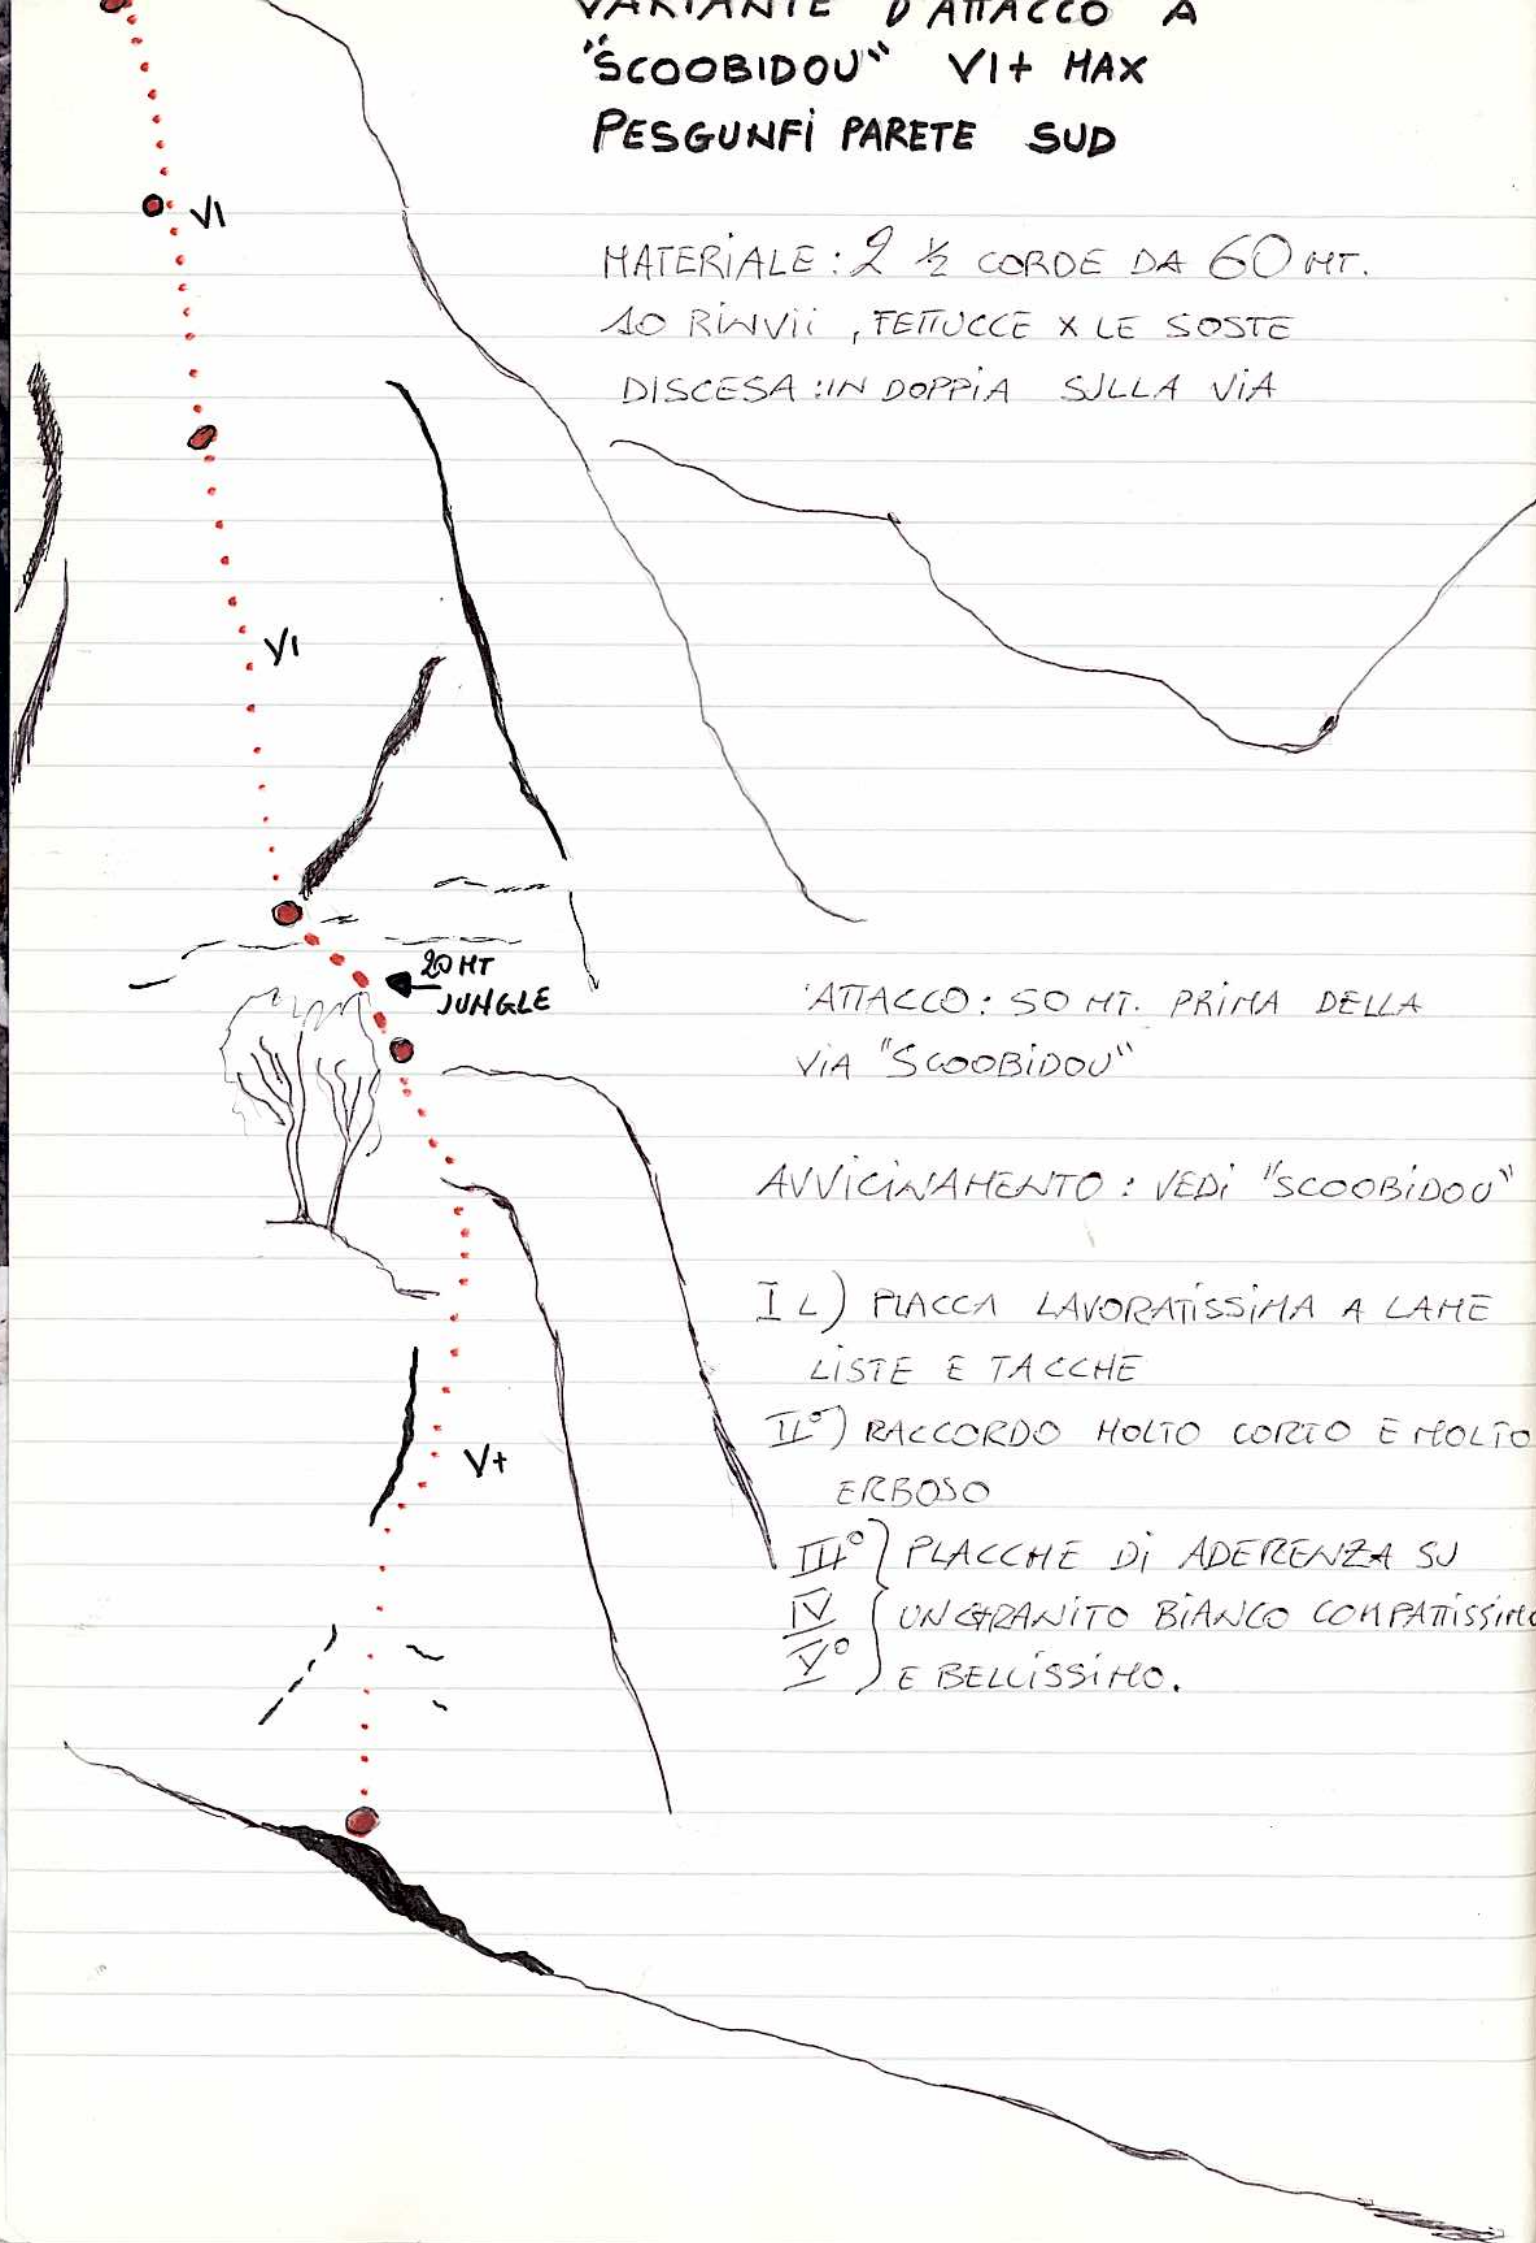 VARIANTE D'ATTACCO A
"SCOOBIDOU" VI+ MAX
PESGUNFI PARETE SUD
VI
MATERIALE: 2 ½ CORDE DA 60 MT.
10 RINVII, FETTUCCE X LE SOSTE
DISCESA: IN DOPPIA SULLA VIA
VI
20 MT
JUNGLE
ATTACCO: 50 MT. PRIMA DELLA
VIA "SCOOBIDOU"
AVVICINAMENTO: VEDI "SCOOBIDOU"
I L) PLACCA LAVORATISSIMA A LAME
LISTE E TACCHE
V+
II°) RACCORDO MOLTO CORTO E MOLTO
ERBOSO
III° } PLACCHE DI ADERENZA SU
IV UN GRANITO BIANCO COMPATTISSIMO
V° E BELLISSIMO.